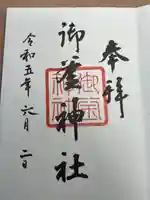 奉拝
御釜神社
令和五年六月二日